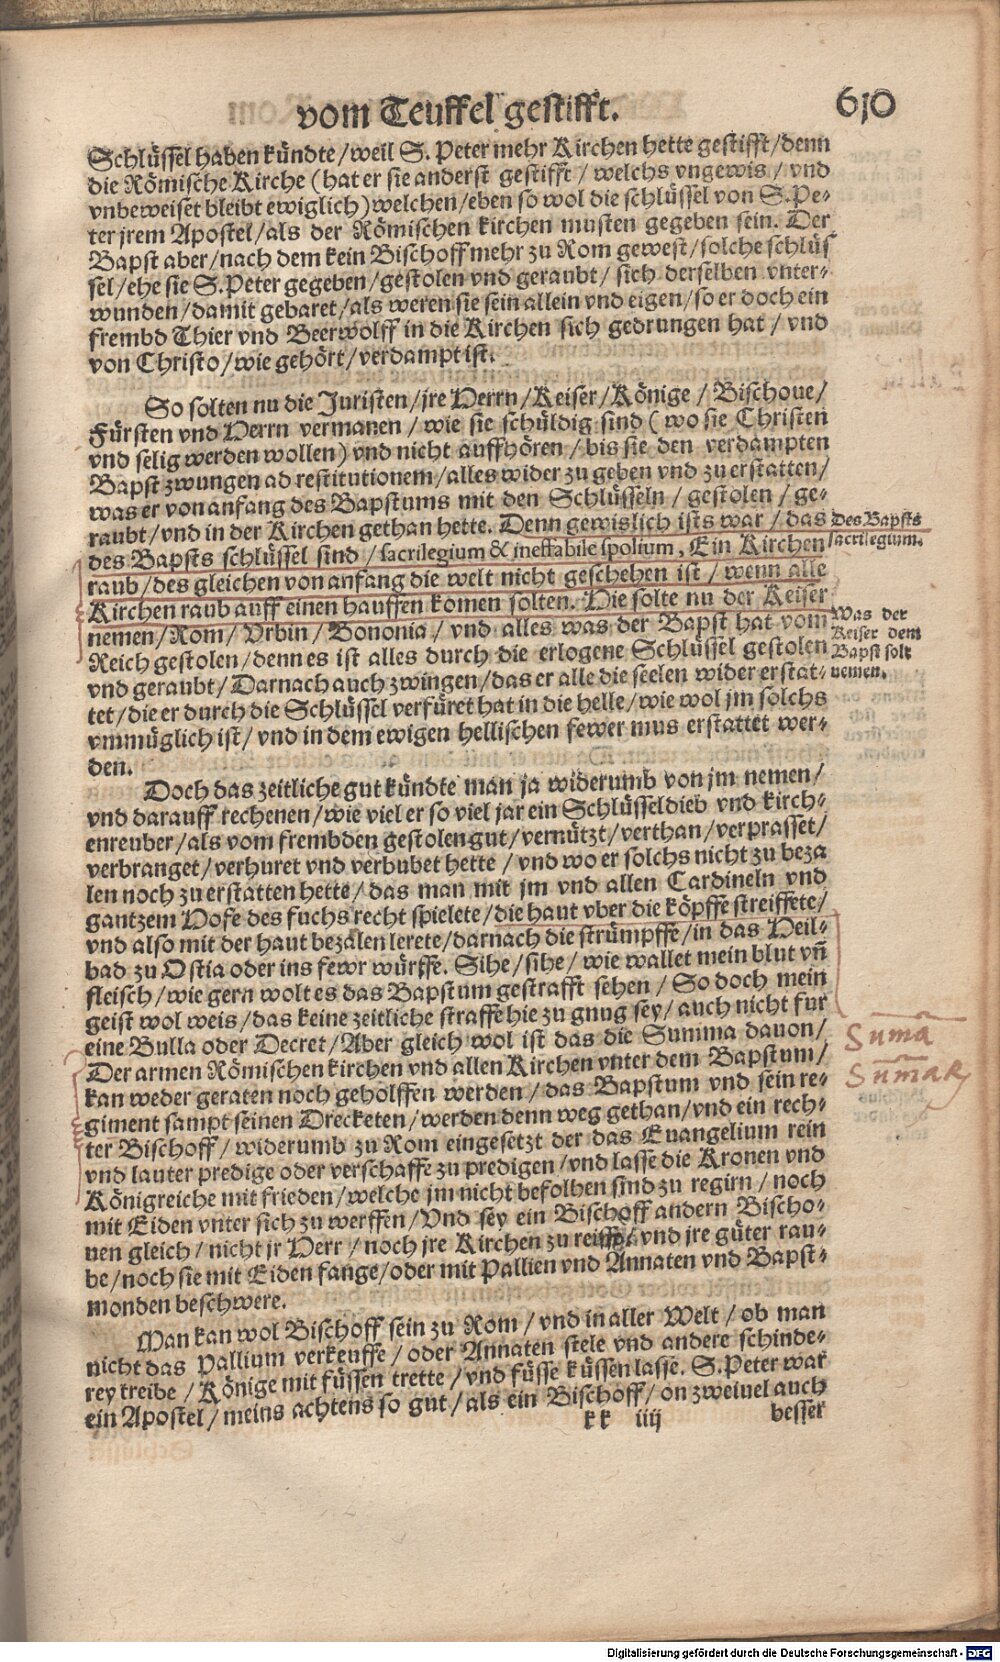 vom Teuffel gestifft. 610
Schlüssel haben kündte/weil S. Peter mehr Kirchen hette gestifft/denn
die Römische Kirche (hat er sie anderst gestifft / welchs vngewis / vnd
vnbeweiset bleibt ewiglich) welchen/eben so wol die schlüssel von S. Pe-
ter jrem Apostel/als der Römischen kirchen musten gegeben sein. Der
Bapst aber/nach dem kein Bischoff mehr zu Rom gewest/solche schlüs
sel/ehe sie S. Peter gegeben/gestolen vnd geraubt/ sich derselben vnter-
wunden/damit gebaret/als weren sie sein allein vnd eigen/so er doch ein
frembd Thier vnd Beerwolff in die Kirchen sich gedrungen hat / vnd
von Christo/wie gehört/verdampt ist.
So solten nu die Juristen/jre Herrn/Keiser/Könige / Bischoue/
Fürsten vnd Herrn vermanen / wie sie schüldig sind ( wo sie Christen
vnd selig werden wollen) vnd nicht auffhören / bis sie den verdampten
Bapst zwungen ad restitutionem/alles wider zu geben vnd zu erstatten/
was er von anfang des Bapstums mit den Schlüsseln / gestolen / ge-
raubt/vnd in der Kirchen gethan hette. Denn gewislich ists war / das
des Bapsts schlüssel sind / sacrilegium & ineffabile spolium, Ein Kirchen
raub/des gleichen von anfang die welt nicht geschehen ist / wenn alle
Kirchen raub auff einen hauffen komen solten. Hie solte nu der Keiser
nemen/Rom/ Vrbin / Bononia / vnd alles was der Bapst hat vom
Reich gestolen/denn es ist alles durch die erlogene Schlüssel gestolen
vnd geraubt/Darnach auch zwingen/das er alle die seelen wider erstat-
tet/die er durch die Schlüssel verfüret hat in die helle/wie wol jm solchs
vnmüglich ist/ vnd in dem ewigen hellischen fewer mus erstattet wer-
den.
Des Bapsts
sacrilegium.
Was der
Keiser dem
Bapst solt
nemen.
Doch das zeitliche gut kündte man ja widerumb von jm nemen/
vnd darauff rechenen/wie viel er so viel jar ein Schlüsseldieb vnd kirch-
enreuber/als vom frembden gestolen gut/vernützt/verthan/verprasset/
verbranget/verhuret vnd verbubet hette / vnd wo er solchs nicht zu beza
len noch zu erstatten hette/das man mit jm vnd allen Cardineln vnd
gantzem Hofe des fuchs recht spielete/die haut vber die köpffe streiffete/
vnd also mit der haut bezalen lerete/darnach die strümpffe/in das Heil-
bad zu Ostia oder ins fewr würffe. Sihe/sihe/ wie wallet mein blut vñ
fleisch/wie gern wolt es das Bapstum gestrafft sehen / So doch mein
geist wol weis/das keine zeitliche straffe hie zu gnug sey/auch nicht fur
eine Bulla oder Decret/Aber gleich wol ist das die Summa dauon/
Der armen Römischen kirchen vnd allen Kirchen vnter dem Bapstum/
kan weder geraten noch geholffen werden / das Bapstum vnd sein re-
giment sampt seinen Drecketen/werden denn weg gethan/vnd ein rech-
ter Bischoff/ widerumb zu Rom eingesetzt der das Euangelium rein
vnd lauter predige oder verschaffe zu predigen/vnd lasse die Kronen vnd
Königreiche mit frieden/welche jm nicht befolhen sind zu regirn / noch
mit Eiden vnter sich zu werffen/Vnd sey ein Bischoff andern Bischo-
uen gleich / nicht jr Herr / noch jre Kirchen zu reissen/ vnd jre güter rau-
be/noch sie mit Eiden fange/oder mit Pallien vnd Annaten vnd Bapst-
monden beschwere.
Suma
Sumaꝝ
Man kan wol Bischoff sein zu Rom / vnd in aller Welt / ob man
nicht das Pallium verkeuffe / oder Annaten stele vnd andere schinde-
rey treibe / Könige mit füssen trette / vnd füsse küssen lasse. S. Peter war
ein Apostel/meins achtens so gut/als ein Bischoff/on zweiuel auch
kk iiij besser
Digitalisierung gefördert durch die Deutsche Forschungsgemeinschaft - DFG